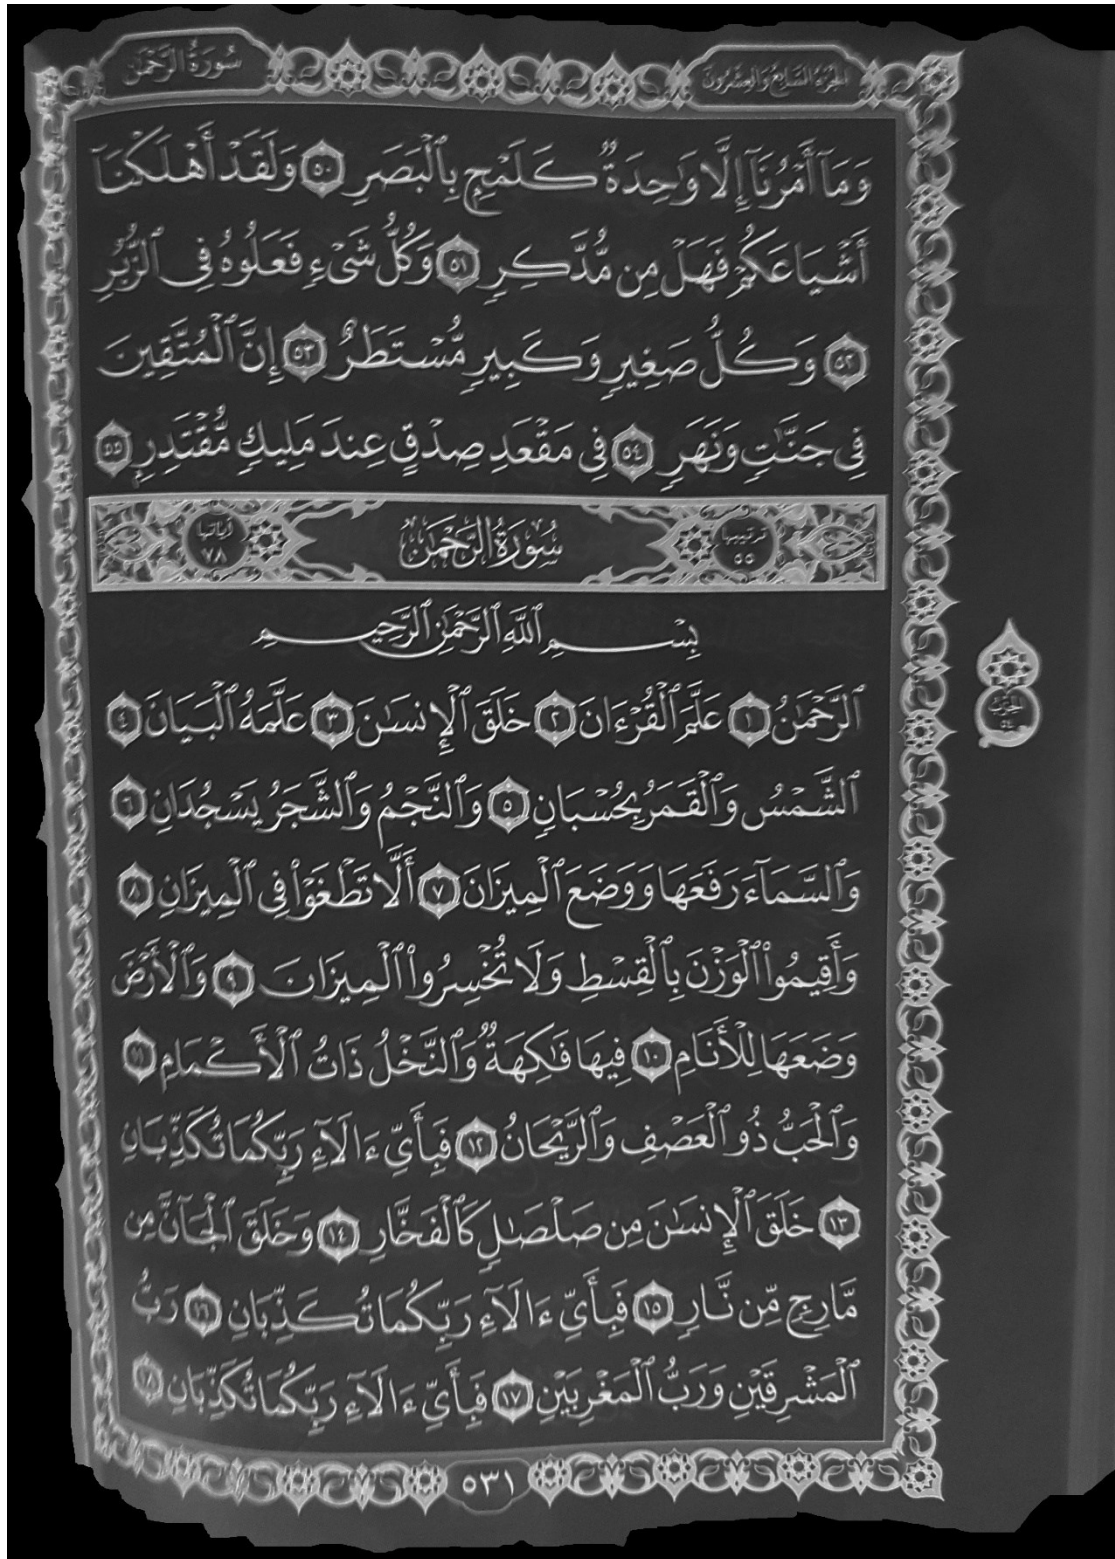 سُورَةُ الرَّحْمَٰن
الجزء السابع والعشرون
وَمَآ أَمْرُنَآ إِلَّا وَٰحِدَةٌ كَلَمْحٍۭ بِٱلْبَصَرِ ٥٠ وَلَقَدْ أَهْلَكْنَآ
أَشْيَاعَكُمْ فَهَلْ مِن مُّدَّكِرٍ ٥١ وَكُلُّ شَىْءٍ فَعَلُوهُ فِى ٱلزُّبُرِ
٥٢ وَكُلُّ صَغِيرٍ وَكَبِيرٍ مُّسْتَطَرٌ ٥٣ إِنَّ ٱلْمُتَّقِينَ
فِى جَنَّٰتٍ وَنَهَرٍ ٥٤ فِى مَقْعَدِ صِدْقٍ عِندَ مَلِيكٍ مُّقْتَدِرٍۭ ٥٥
ترتيبها ٥٥ سُورَةُ الرَّحْمَٰن آياتها ٧٨
بِسْمِ ٱللَّهِ ٱلرَّحْمَٰنِ ٱلرَّحِيمِ
ٱلرَّحْمَٰنُ ١ عَلَّمَ ٱلْقُرْءَانَ ٢ خَلَقَ ٱلْإِنسَٰنَ ٣ عَلَّمَهُ ٱلْبَيَانَ ٤
ٱلشَّمْسُ وَٱلْقَمَرُ بِحُسْبَانٍ ٥ وَٱلنَّجْمُ وَٱلشَّجَرُ يَسْجُدَانِ ٦
وَٱلسَّمَآءَ رَفَعَهَا وَوَضَعَ ٱلْمِيزَانَ ٧ أَلَّا تَطْغَوْا۟ فِى ٱلْمِيزَانِ ٨
وَأَقِيمُوا۟ ٱلْوَزْنَ بِٱلْقِسْطِ وَلَا تُخْسِرُوا۟ ٱلْمِيزَانَ ٩ وَٱلْأَرْضَ
وَضَعَهَا لِلْأَنَامِ ١٠ فِيهَا فَٰكِهَةٌ وَٱلنَّخْلُ ذَاتُ ٱلْأَكْمَامِ ١١
وَٱلْحَبُّ ذُو ٱلْعَصْفِ وَٱلرَّيْحَانُ ١٢ فَبِأَىِّ ءَالَآءِ رَبِّكُمَا تُكَذِّبَانِ
١٣ خَلَقَ ٱلْإِنسَٰنَ مِن صَلْصَٰلٍ كَٱلْفَخَّارِ ١٤ وَخَلَقَ ٱلْجَآنَّ مِن
مَّارِجٍ مِّن نَّارٍ ١٥ فَبِأَىِّ ءَالَآءِ رَبِّكُمَا تُكَذِّبَانِ ١٦ رَبُّ
ٱلْمَشْرِقَيْنِ وَرَبُّ ٱلْمَغْرِبَيْنِ ١٧ فَبِأَىِّ ءَالَآءِ رَبِّكُمَا تُكَذِّبَانِ ١٨
٥٣١
الحزب ٥٤